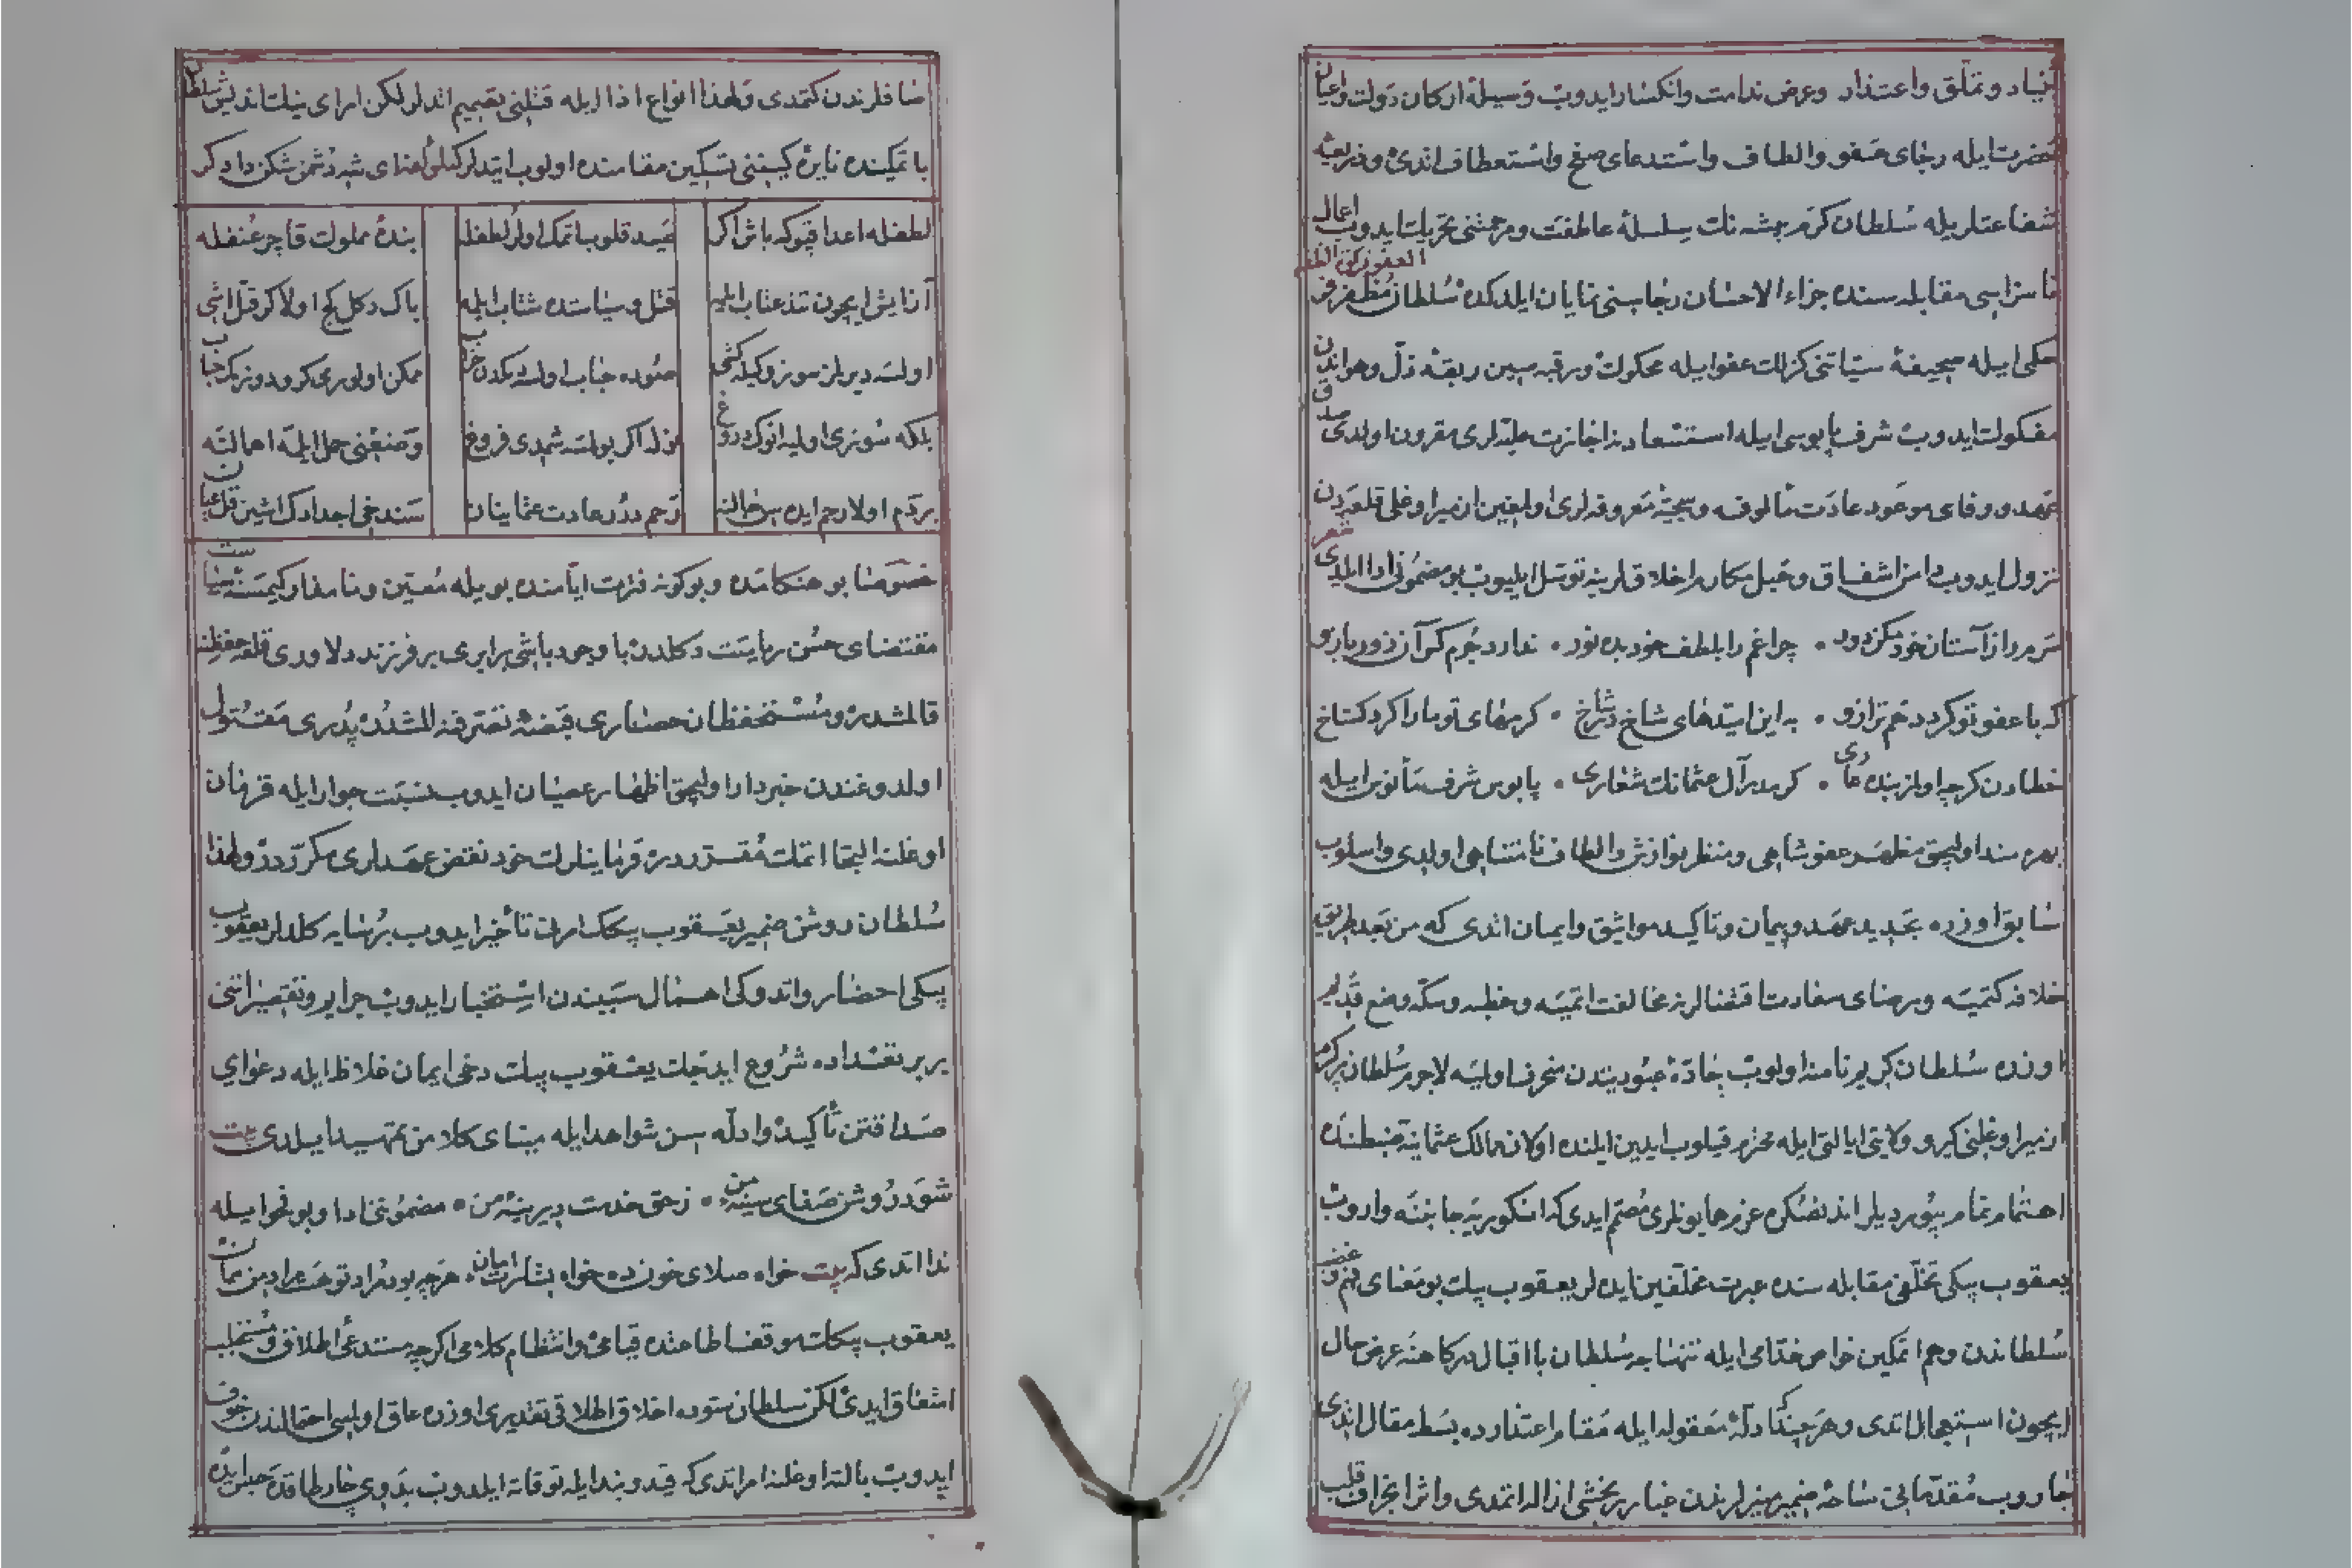 بنیاد و تملّق واعتذار وعرض ندامت وانکسار ایدوب وسیلۀ ارکان دولت واعیان
حضرت ایله رجای عفو والطاف واستدعای صفح واستعطاف اتدی وذریعۀ
شفاعتلریله سُلطان کرم پیشه نك سلسلۀ عاطفت ومرحمتنی تحریك ایدوب اعمال
ناسزاسی مقابله سنده جزاء الاحسان رجاسنی نمایان ایلدکده سُلطان مُظفر فر
العفو زکوة الظفر
حکمی ایله صحیفۀ سیّاتنی کزلك عفو ایله محکوك ورقبه سین ربقۀ ذلّ وهواندن
مفکوك ایدوب شرف پابوسی ایله استسعادنه اجازت علیّه لری مقرون اولدی صدق
عهد ووفای موعود عادت مألوفه وسجیّۀ معروفه لری اولمغین ازمیر اوغلی قلعه دن
نزول ایدوب دامن اشفاق وحبل مکارم اخلاق لرینه توسّل ایلیوب بو مضمونی ادا ایلدی شعر
سرم را ز آستان خود مکن دور • چراغم را بلطف خود بده نور • ندارد جُرم کس آن زور بازو
که با عفو تو کردد هم ترازو • به این امیّدهای شاخ در شاخ • کرمهای تو ما را کرد کستاخ
خطادن کرچه اولمز بنده عاری • کرمدر آل عثمانك شعاری • پابوس شرف مأنوس ایله
بهره مند اولیجق مظهر عفو شاهی ومنظر نوازش والطاف نامتناهی اولدی واسلوب
سابق اوزره تجدید عهد وپیمان وتاکید مواثیق وایمان اتدی که من بعد طریق
خلافه کتمیه ورضای سعادت اقتضالرنه مخالفت اتمیه وخطبه وسکّه وضع قدیم
اوزره سُلطان کریم نامنه اولوب جادّۀ عبودیتدن منحرف اولمیه لاجرم سُلطان پر کرم
ازمیر اوغلنی کیرو ولایتی ایالتی ایله محترم قیلوب ایدین ایلنده اولان ممالك عثمانیّه ضبطنده
اهتمام تمام بیوردیلر اندنصکره عزم همایونلری مُصمّم ایدی که انکوریّه جانبنه واروب
یعقوب بیکی تخلّفی مقابله سنده عبرت مخلّفین ایده لر یعقوب بیك بو معنای فهم وغضب
سُلطاندن وهم اتمکین خواص خدّامی ایله تنها جه سُلطان با اقبال درکاهنه عرض حال
ایچون استعجال اتدی وهرچند که ادلّۀ معقوله ایله مقام اعتذارده بسط مقال اتدی
جاروب مُقدّماتی ساحۀ ضمیر منیرلرندن غبار رنجشی ازاله اتمدی واثر انحراف قلب
صافلرندن کتمدی ولهذا انواع اذا ایله قتلنی تصمیم اتدلر لکن امرای نیك اندیش سُلطان
با تمکینده نایرۀ کینی تسکین مقامنده اولوب ایتدلر کلوکه ای شه دُشمن شکن دادکر
لطفله اعدا قپوکه باش اکر صید قلوب اتمك اولر لطفله بندۀ مملوك قاچر عُنفله
آزایش ایچون تند عتاب ایلمه قتل وسیاستده شتاب ایله باك دکل کچ اولا کر قتل اشی
اولسه دیرلمز سوز وکیله کشی صُوده حباب اولسه یکدن خراب ممکن اولورمی کرو دونمك حباب
بلکه سُوزی اولیه انوك دروغ بولدا اکر بولسه شمدی فروغ وضعنی حل ایله اهمال نه
بر دم اولا رحم ایده سن حالنه رحم در عادت عثمانیان سن دخی اجدادك اشین قل عیان
خصوصا بو هنکامده وبو کونه فترت ایّامنده بویله مُعیّن ونامدار کیمسنه سیاست
مقتضای حسُن رعایت دکلدن با وجود باشی برابری بر فرزند دلاوری قلعه حفظنه
قالمشدر ومُستحفظان حصاری قبضۀ تصرفنه المشدر پدری مقتول
اولدوغندن خبردار اولیجق اظهار عصیان ایدوب نسبت جوار ایله قرمان
اوغلنه التجا اتمك مُقرّردر قرمانیلرك خود نقض عهدلری مکرّردر ولهذا
سُلطان روشن ضمیر یعقوب بیکك امرن تأخیر ایدوب بُرسایه کلدلر یعقوب
بیکی احضار واتدوکی اهمال سببندن استخبار ایدوب جرایم وتقصیراتنی
بربر تعداده شرُوع ایدیجك یعقوب بیك دخی ایمان غلاظ ایله دعوای
صداقتن تأکید وادلّه سن شواهد ایله مبنای کلامن تمهید ایلدی بیت
شود روشن صفای سینۀ من • ز حق خدمت دیرینۀ من • مضمونن ادا وبو فحوا ایله
ندا اتدی که بیت خواه صلای خون ده خواه بشارت امان • هرچه بود مراد تو هست مراد من همان
یعقوب بیکك موقف اطاعتده قیامی وانتظام کلامی اکرچه مستدعئ اطلاق ومُستجلب
اشفاق ایدی لکن سلطان ستوده اخلاق اطلاقی تقدیری اوزره عاق اولمسی احتمالندن خوف
ایدوب بالته اوغلنه امر اتدی که قید وبند ایله توقاته ایلدوب بدوی چارطاقده حبس ایده